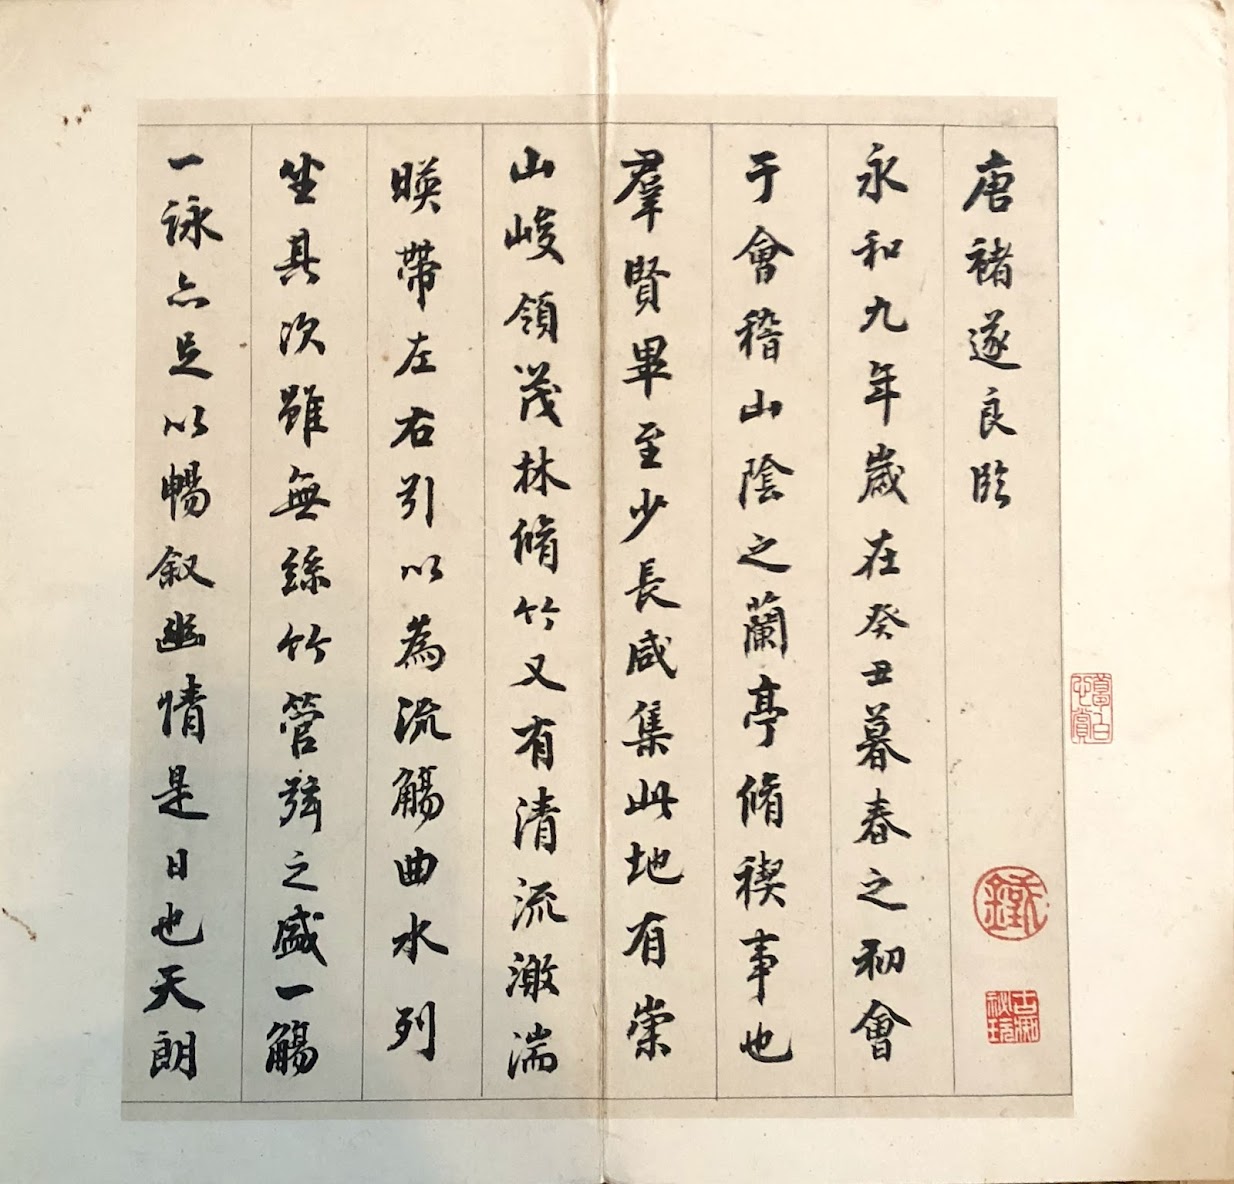 唐褚遂良臨
永和九年歲在癸丑暮春之初會
于會稽山陰之蘭亭脩禊事也
羣賢畢至少長咸集此地有崇
山峻領茂林脩竹又有清流激湍
暎帶左右引以為流觴曲水列
坐其次雖無絲竹管弦之盛一觴
一詠亦足以暢叙幽情是日也天朗